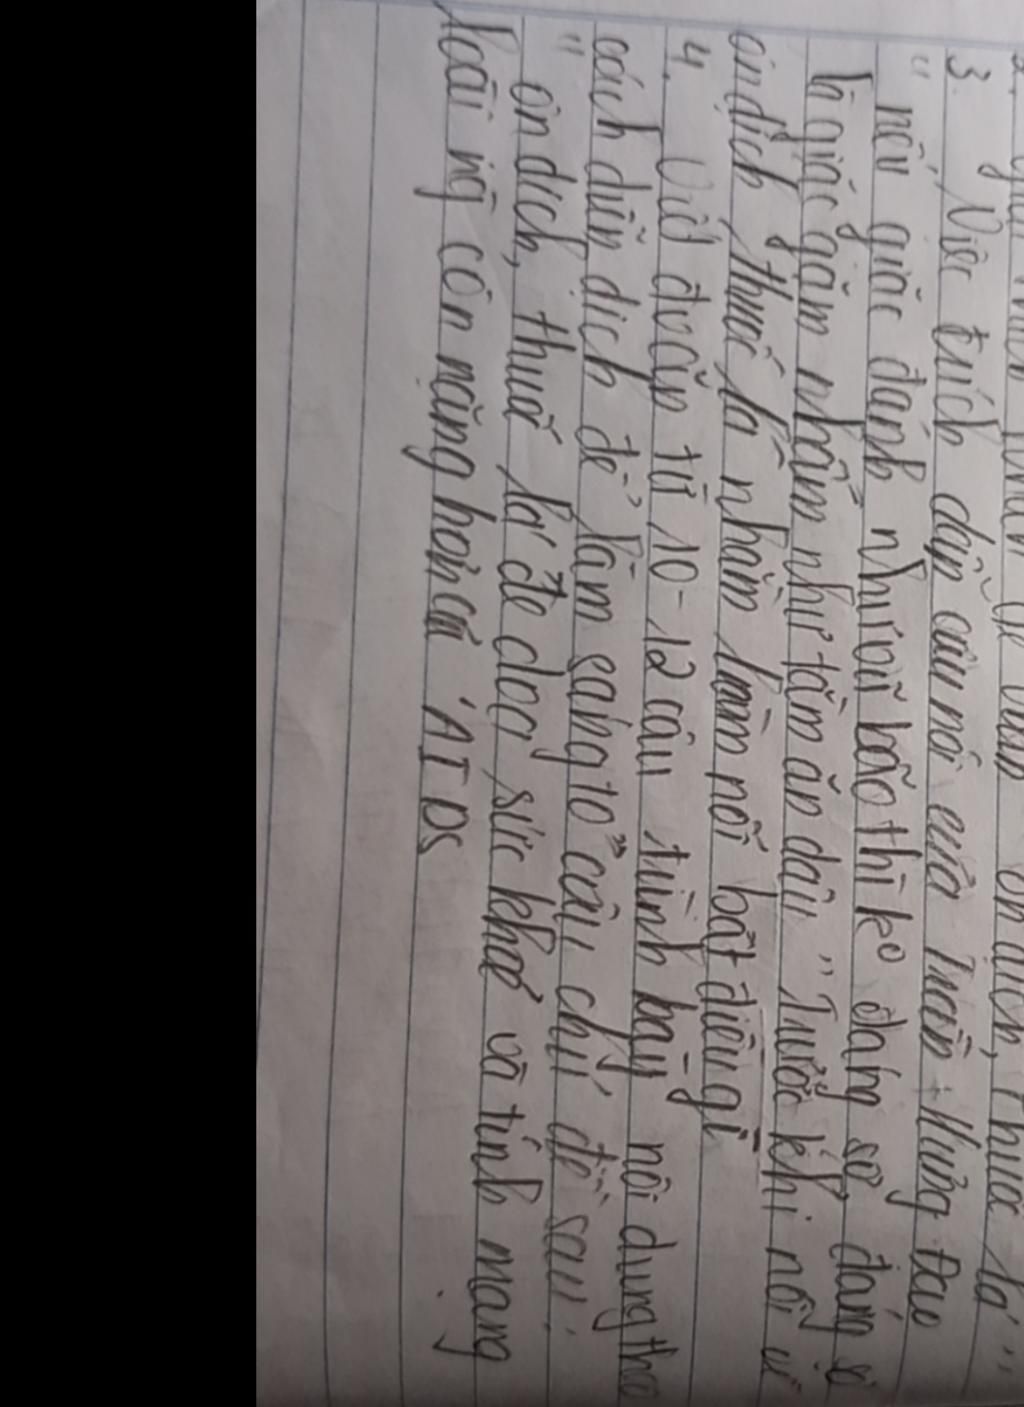 ôn dịch, thuốc lá"
3. Việc trích dẫn câu nói của Trần Hưng Đạo
" nếu giặc đánh như vũ bão thì ko đáng sợ đáng sợ
là giặc gặm nhấm như tằm ăn dâu " Trước khi nói về
ôn dịch thuốc lá nhằm làm nổi bật điều gì
4. Viết đvăn từ 10-12 câu trình bày nội dung theo
cách diễn dịch để làm sáng tỏ câu chủ đề sau:
" ôn dịch, thuốc lá đe dọa sức khoẻ và tính mạng
loài ng còn nặng hơn cả AIDS